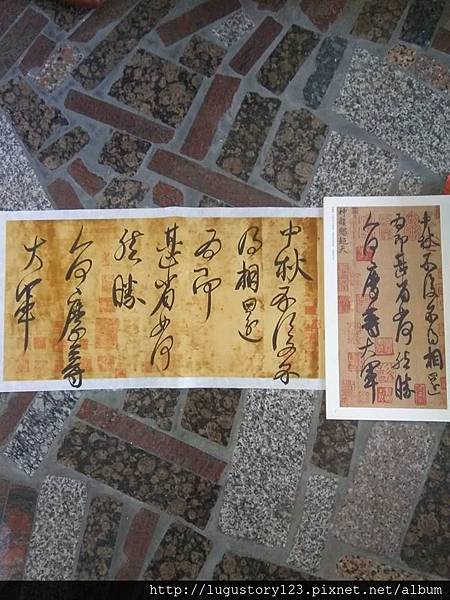 中秋不復不
得相還
為即
甚省如何
然勝
人何慶等
大軍
中秋不復不得相還
為即甚省如何然勝
人何慶等大軍
神韻獨超天
http://lugustory123.pixnet.net/album